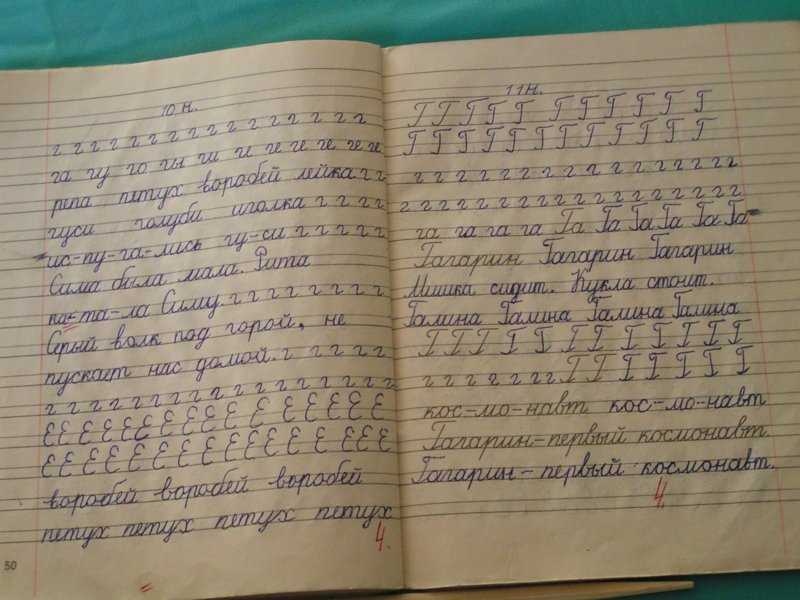 10 н.
г г г г г г г г г г г г г г г г
га гу го ги ги ге ге ге ге ге
репа петух воробей лейка г г
гуси голуби иголка г г г г
ис-пу-га-лись гу-си г г г г г
Сима была мала. Рита
ка-та-ла Симу. г г г г г г г г
Серый волк под горой, не
пускает нас домой. г г г г г
г г г г г г г г г г г г г г г г г
Е Е Е Е Е Е Е Е Е Е Е Е Е Е Е
Е Е Е Е Е Е Е Е Е Е Е Е Е Е Е Е
воробей воробей воробей
петух петух петух петух
4.
50
11 н.
Г Г Г Г Г Г Г Г Г Г Г Г
Г Г Г Г Г Г Г Г Г Г Г Г
г г г г г г г г г г г г г г г
г г г г г г г г г г г г г г г г г
га га га га Га Га Га Га Га Га
Гагарин Гагарин Гагарин
Мишка сидит. Кукла стоит.
Галина Галина Галина Галина
Г Г Г Г Г Г Г Г Г Г Г Г
г г г г г г г Г Г Г Г Г Г Г
кос-мо-навт кос-мо-навт
Гагарин-первый космонавт.
Гагарин - первый космонавт.
4.